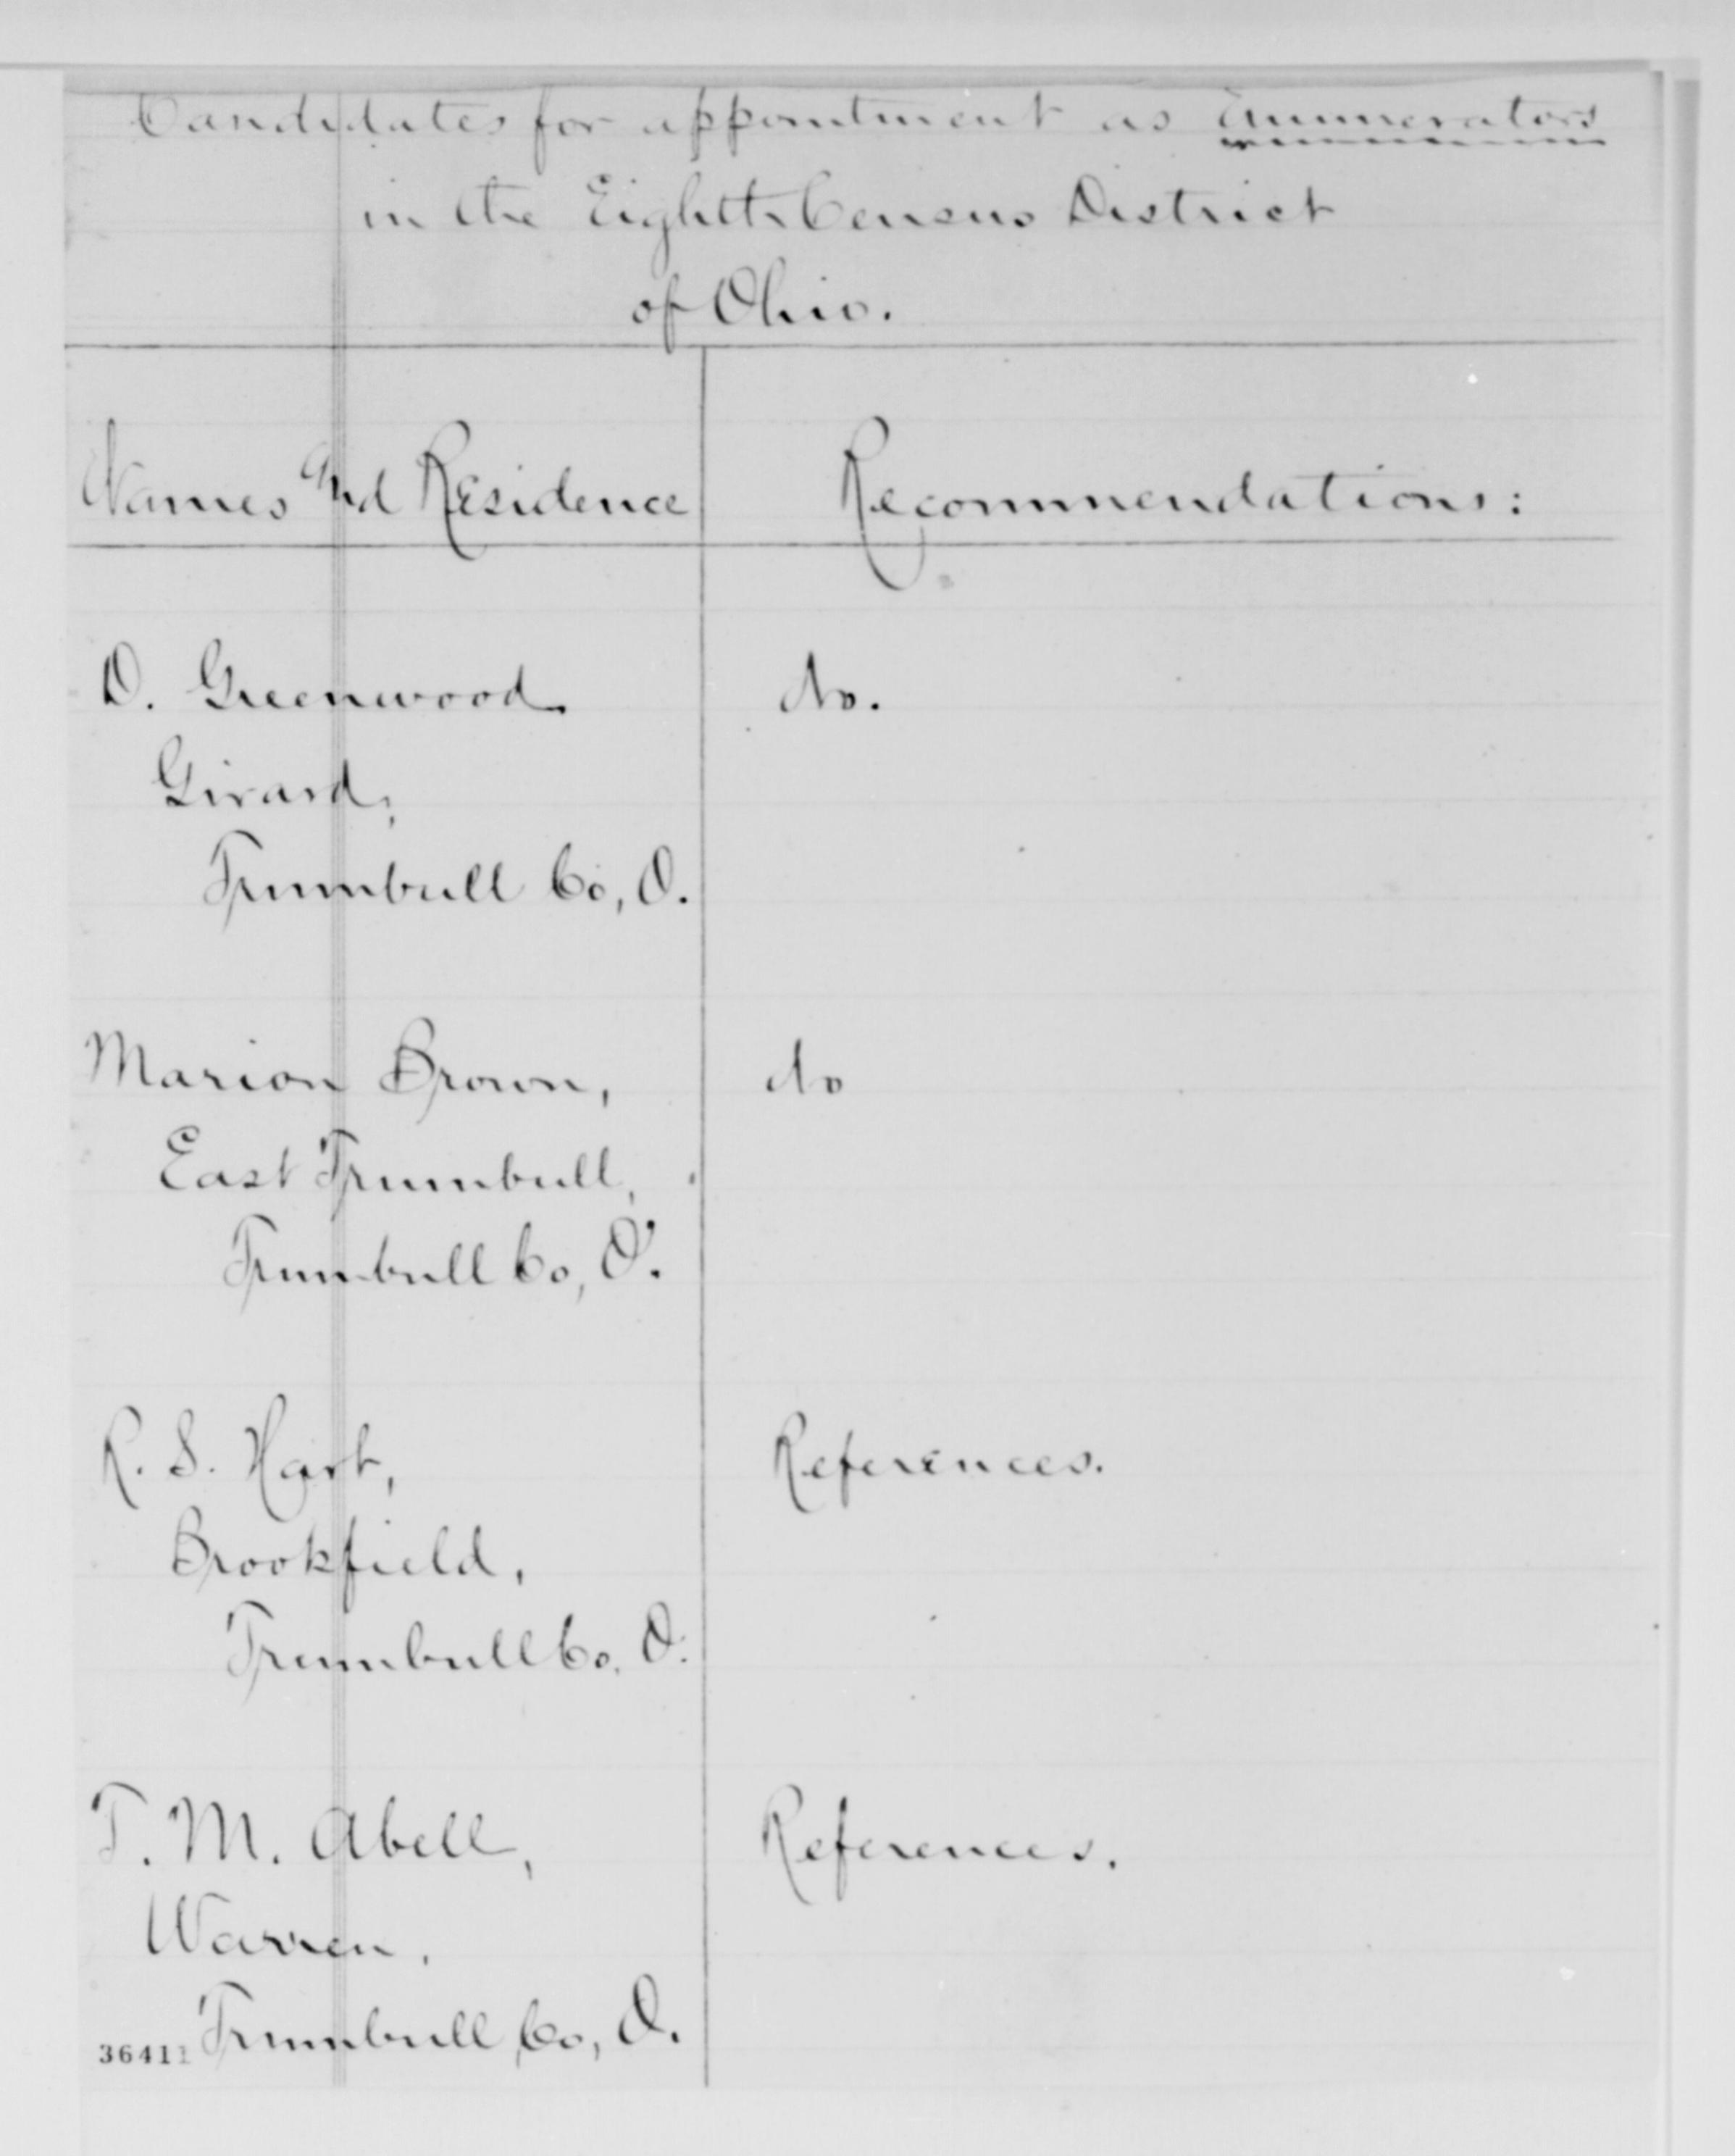 Candidates for appointment as Enumerators
in the Eighth Census District
of Ohio.
Names and Residence
Recommendations:
O. Greenwood.
No.
Girard,
Trumbull Co, O.
Marion Brown,
No
East Trumbull,
Trumbull Co, O.
R. S. Hart,
References.
Brookfield,
Trumbull Co. O.
T. M. Abell,
References.
Warren,
Trumbull Co, O.
36411